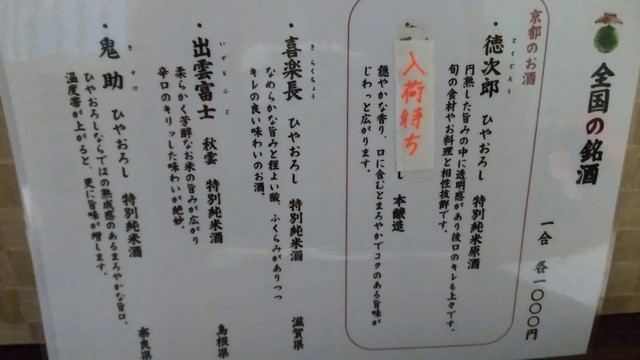 全国の銘酒
一合 各一〇〇〇円
京都のお酒
とくじろう
・徳次郎 ひやおろし 特別純米原酒
円熟した旨みの中に透明感があり後口のキレも上々です。
旬の食材やお料理と相性抜群です。
入荷待ち
し 本醸造
穏やかな香り、口に含むとまろやかでコクのある旨味が
じわっと広がります。
きらくちょう
・喜楽長 ひやおろし 特別純米酒 滋賀県
なめらかな旨みと程よい酸、ふくらみがありつつ
キレの良い味わいのお酒。
いずもふじ
・出雲富士 秋雲 特別純米酒 島根県
柔らかく芳醇なお米の旨みが広がり
辛口のキリッした味わいが絶妙。
きすけ
・鬼助 ひやおろし 特別純米酒 奈良県
ひやおろしならではの熟成感のあるまろやかな旨口。
温度帯が上がると、更に旨味が増します。